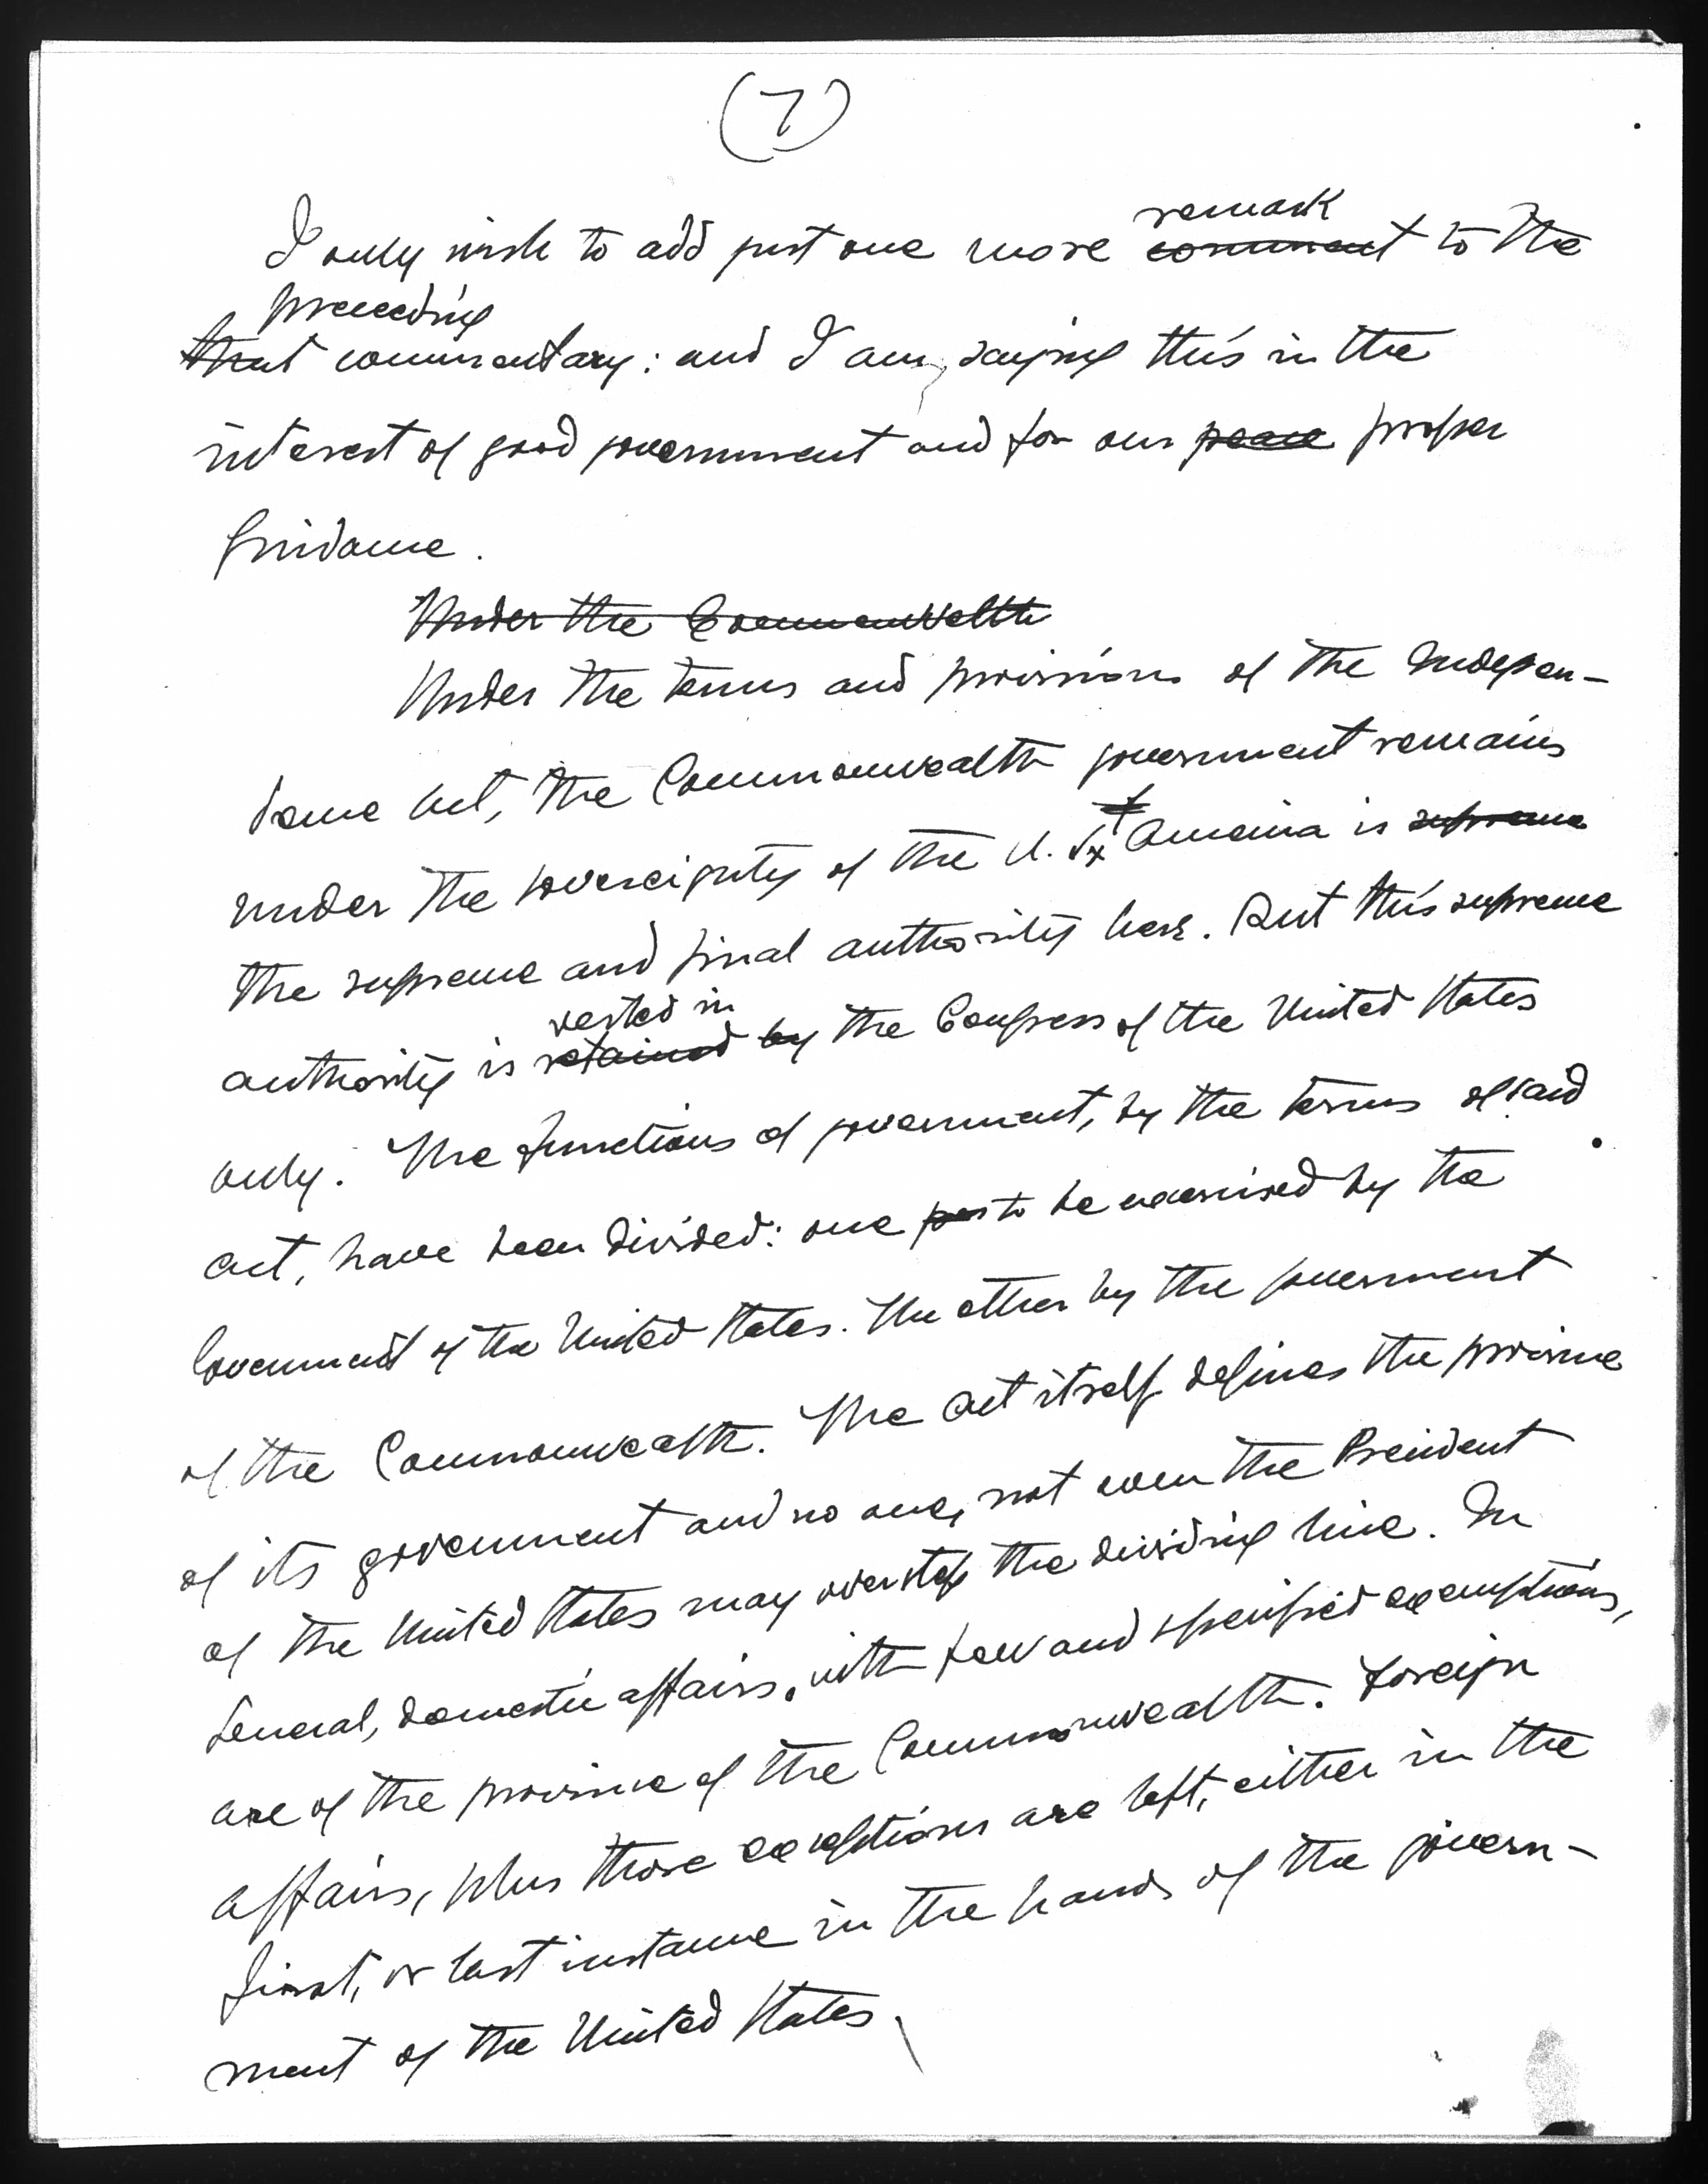 (7)
remark
I only wish to add just one more comment to the
preceeding
that commentary: and I am, saying this in the
interest of good government and for our peace proper
Guidance.
Under the Commonwelth
Under the terms and provisions of the Indepen-
dence Act, the Commonwealth government remains
under the sovereignty of the U. S. America is supreme
the supreme and final authority here. But this supreme
vested in
authority is retained by the Congress of the United States
only. The functions of government, by the terms of said
act, have been divided: one to be exercised by the
Government of the United States. The other by the government
of the Commonwealth. The Act itself defines the province
of its government and no one, not even the President
of the United States may overstep the dividing line. In
General, domestic affairs, with few and specified exemptions,
are of the province of the Commonwealth. Foreign
affairs, plus those exceptions are left, either in the
first, or last instance in the hands of the govern-
ment of the United States